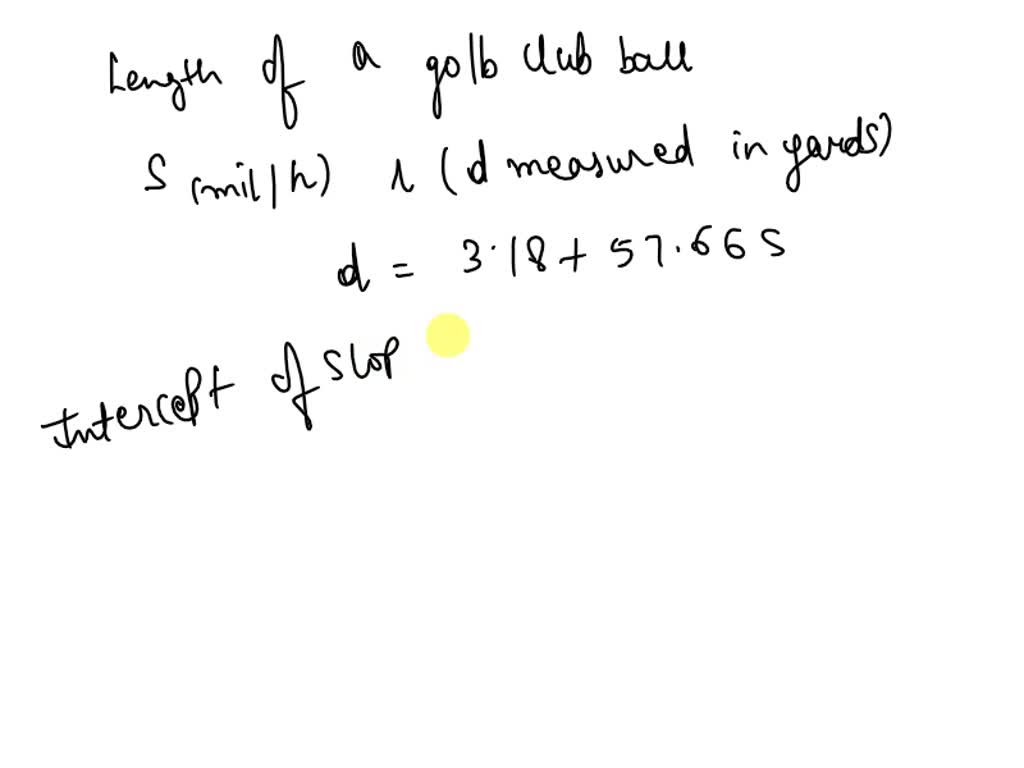 Length of a golb club ball
S (mil/h) & (d measured in yards)
d = 3.18 + 57.66 S
Intercept of slop